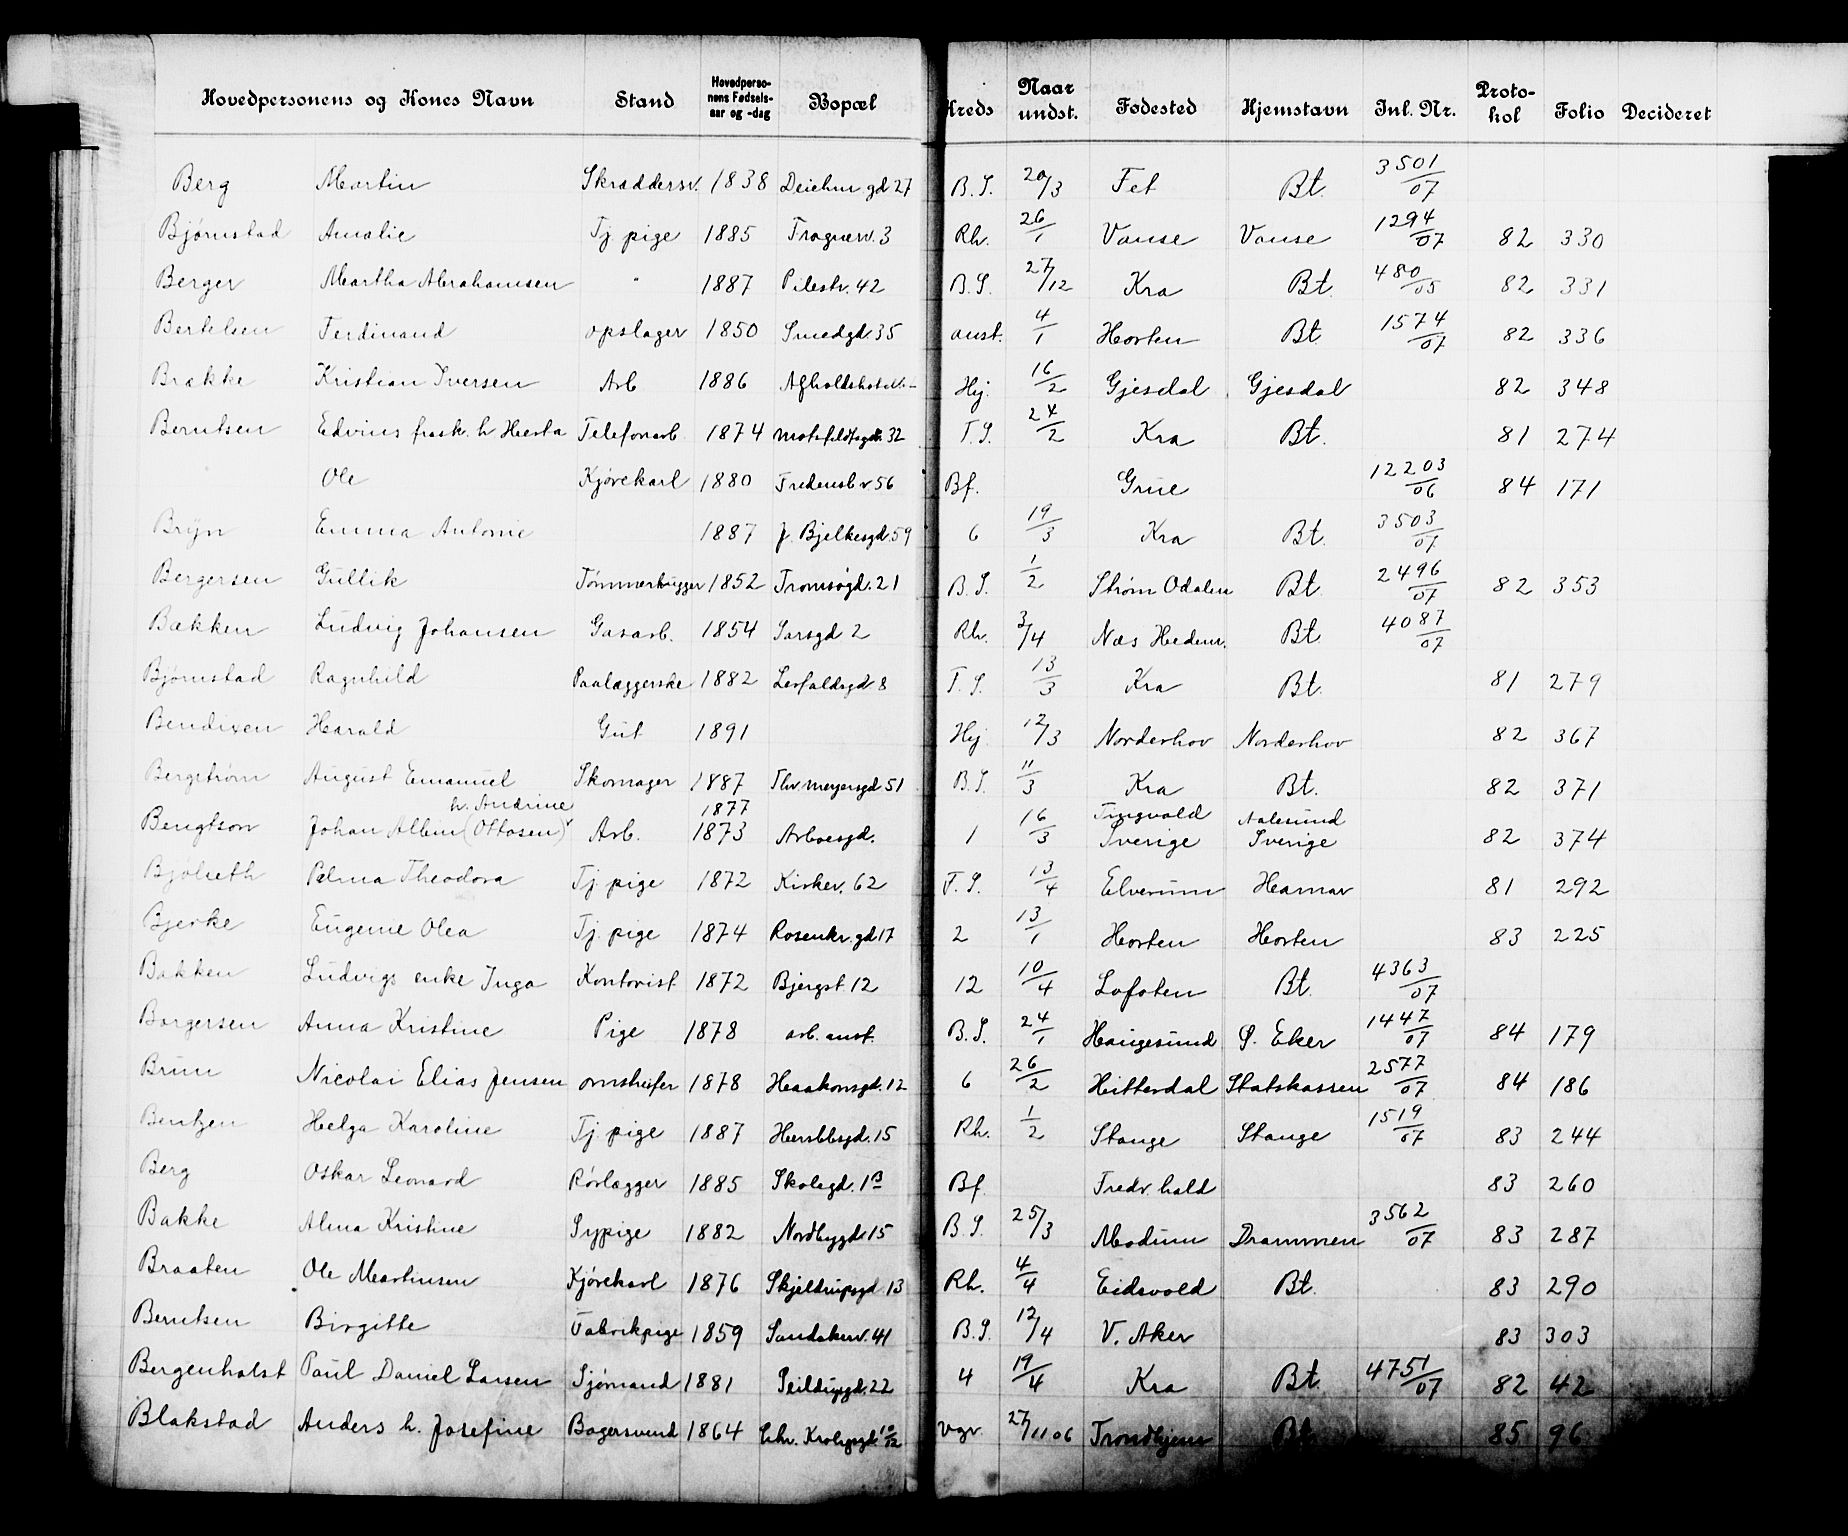 Hovedpersonens og Kones Navn Stand Hovedpersonens Fødsels-aar og -dag Bopæl Kreds Naar undst. Fødested Hjemstavn Inl. Nr. Protokol Folio Decideret
Berg Martin Skræddersv. 1838 Deichm gd 27 B.S. 20/3 Fet Bt. 3501/07
Bjørnstad Amalie Tj pige 1885 Frognerv. 3 Rh. 26/1 Vanse Vanse 1294/07 82 330
Berger Martha Abrahamsen " 1887 Pilestr. 42 B.S. 27/12 Kra Bt. 480/05 82 331
Bertelsen Ferdinand opslager 1850 Smedgd. 35 anst. 4/1 Horten Bt. 1574/07 82 336
Brække Kristian Iversen Arb 1886 Afholdshotel Hj. 16/2 Gjesdal Gjesdal 82 348
Berntsen Edvins frask. h Herta Telefonarb. 1874 Motzfeldtsgd. 32 T.S. 24/2 Kra Bt. 81 274
Ole Kjørekarl 1880 Fredensb v 56 Bf. Grue 12203/06 84 171
Bryn Emma Antonie 1887 J. Bjelkesgd. 59 6 19/3 Kra Bt. 3503/07
Bergersen Gullik Tømmerhugger 1852 Tromsøgd. 21 B.S. 1/2 Strøm Odalen Bt. 2496/07 82 353
Bækken Ludvig Johansen Gasarb. 1854 Sarsgd 2 Rh. 3/4 Næs Hedem. Bt. 4087/07
Bjørnstad Ragnhild Paalæggerske 1882 Løvfaldsgd 8 T.S. 13/3 Kra Bt. 81 279
Bendixen Harald Gut 1891 Hj. 12/3 Norderhov Norderhov 82 367
Bergstrøm August Emanuel Skomager 1887 Thv. meyersgd 51 B.S. 11/3 Kra Bt. 82 371
h. Andrine 1877 Tingvold Aalesund
Bengtson Johan Albin (Ottosen) Arb. 1873 Arboesgd. 1 16/3 Sverige Sverige 82 374
Bjølseth Pelma Theodora Tj. pige 1872 Kirkev. 62 T.S. 13/4 Elverum Hamar 81 292
Bjerke Eugenie Olea Tj. pige 1874 Rosenkr. gd 17 2 13/1 Horten Horten 83 225
Bakken Ludvigs enke Inga Kontorist 1872 Bjergst 12 12 10/4 Lofoten Bt. 4363/07
Borgersen Anna Kristine Pige 1878 arb. anst. B.S. 24/1 Haugesund S. Eker 1447/07 84 179
Brun Nicolai Elias Jensen omstreifer 1878 Haakonsgd. 12 6 26/2 Hitterdal Statskassen 2577/07 84 186
Bentzen Helga Karoline Tj. pige 1887 Herslebsgd. 15 Rh. 1/2 Stange Stange 1519/07 83 244
Berg Oskar Leonard Rørlægger 1885 Skolegd. 1B Bf. Fredr. hald 83 260
Bakke Alma Kristine Sypige 1882 Nordbygd 15 B.S. 25/3 Modum Drammen 3562/07 83 287
Braaten Ole Martinsen Kjørekarl 1876 Skjeldrupsgd. 13 Rh. 4/4 Eidsvold Bt. 83 290
Berntsen Birgitte Fabrikpige 1859 Sandakerv. 41 B.S. 12/4 V. Aker 83 303
Bergenholst Paul Daniel Larsen Sjømand 1881 Seildugsgd. 22 4 19/4 Kra Bt. 4751/07 82 42
Blakstad Anders h. Josefine Bagersvend 1864 Chr. Krohgsgd. vgr. 27/11 06 Trondhjem Bt. 85 96